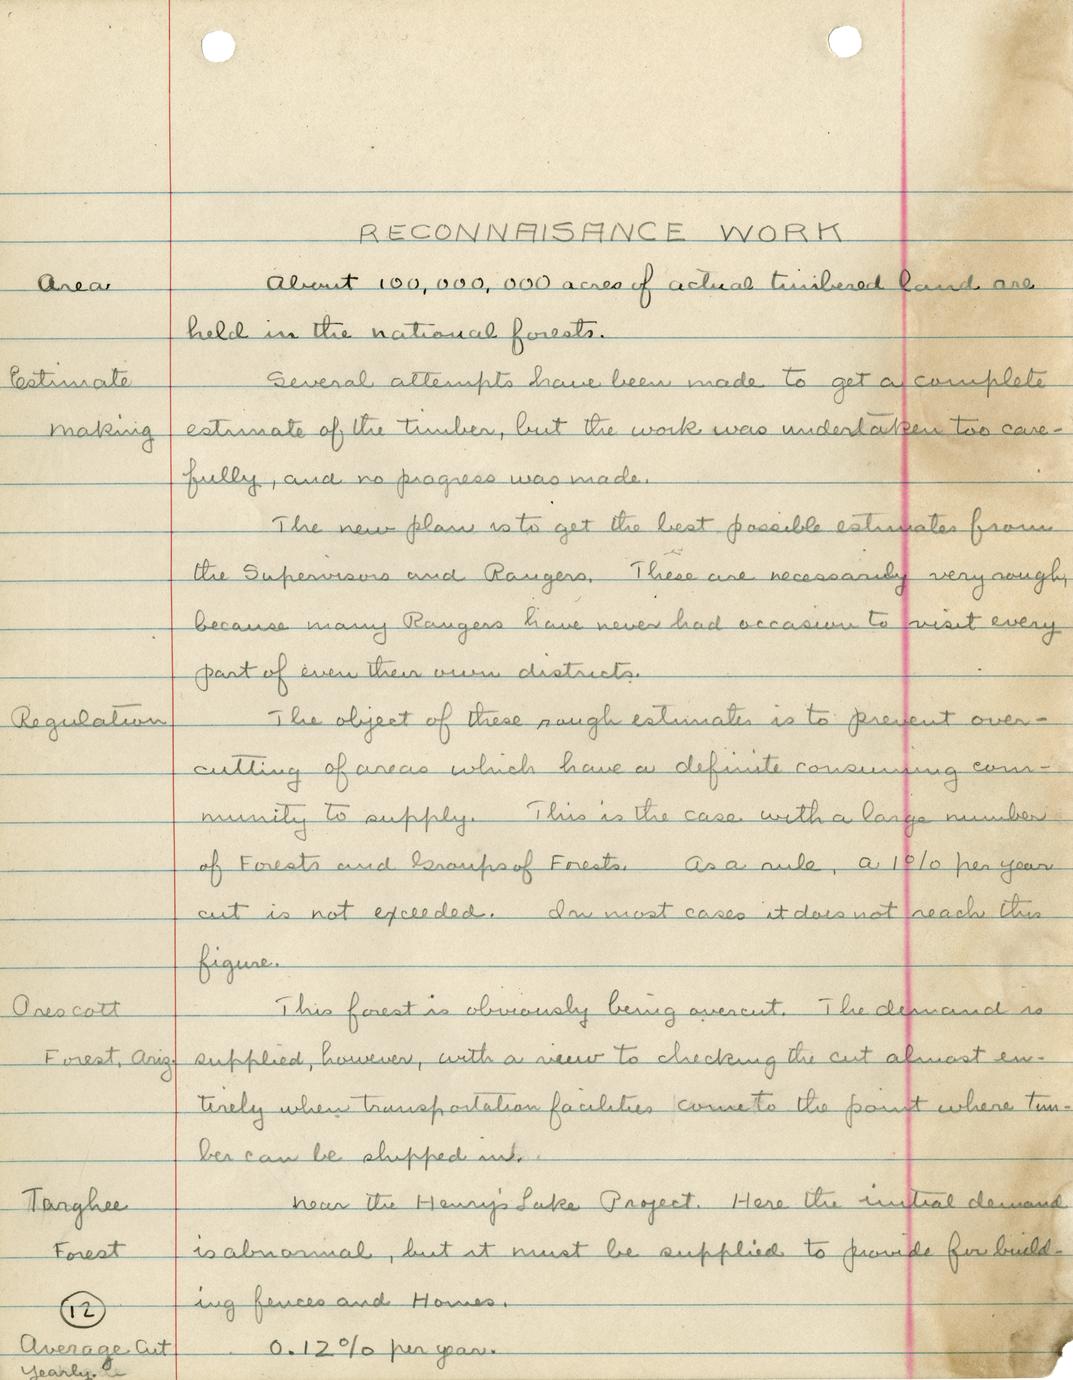 RECONNAISANCE WORK
Area About 100,000,000 acres of actual timbered land are
held in the national forests.
Estimate Several attempts have been made to get a complete
making estimate of the timber, but the work was undertaken too care-
fully, and no progress was made.
The new plan is to get the best possible estimates from
the Supervisors and Rangers. These are necessarily very rough,
because many Rangers have never had occasion to visit every
part of even their own districts.
Regulation The object of these rough estimates is to prevent over-
cutting of areas which have a definite consuming com-
munity to supply. This is the case with a large number
of Forests and Groups of Forests. As a rule, a 1% per year
cut is not exceeded. In most cases it does not reach this
figure.
Prescott This forest is obviously being overcut. The demand is
Forest, Ariz. supplied, however, with a view to checking the cut almost en-
tirely when transportation facilities come to the point where tim-
ber can be shipped in.
Targhee near the Henry's Lake Project. Here the initial demand
Forest is abnormal, but it must be supplied to provide for build-
ing fences and Homes.
12
Average Cut 0.12% per year.
Yearly.